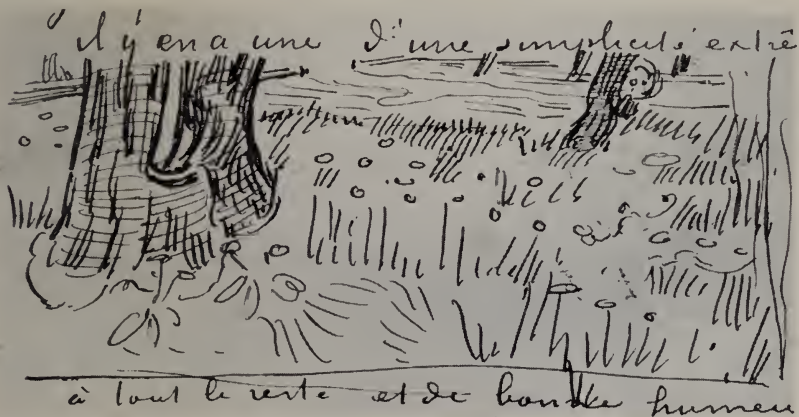 il y en a une d'une simplicité extrê
à tout le reste et de bonne humeu